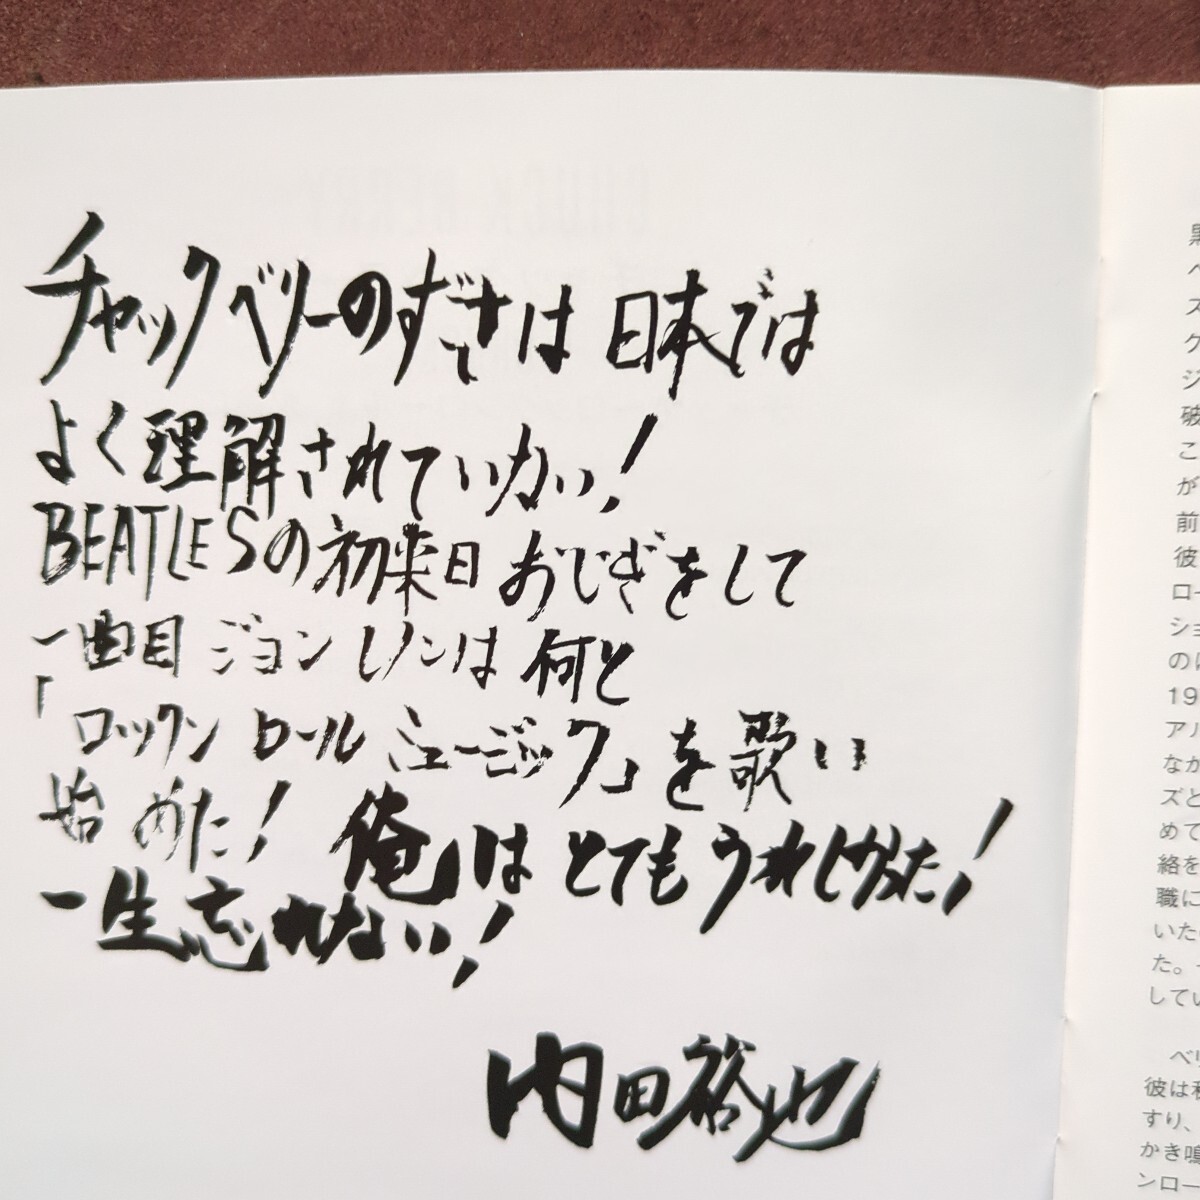 チャックベリーのすごさは 日本では
よく理解されていない!
BEATLESの初来日 おじぎをして
一曲目 ジョン レノンは 何と
「ロックン ロール ミュージック」を歌い
始めた! 俺は とてもうれしかった!
一生忘れない!
内田裕也
ク
ジ
破
こ
が
前
彼
ロー
ショ
19
アル
なか
ズと
めて
絡を
職に
いた
た。
してい
ベリ
彼は
すり、
かき鳴
ンロー